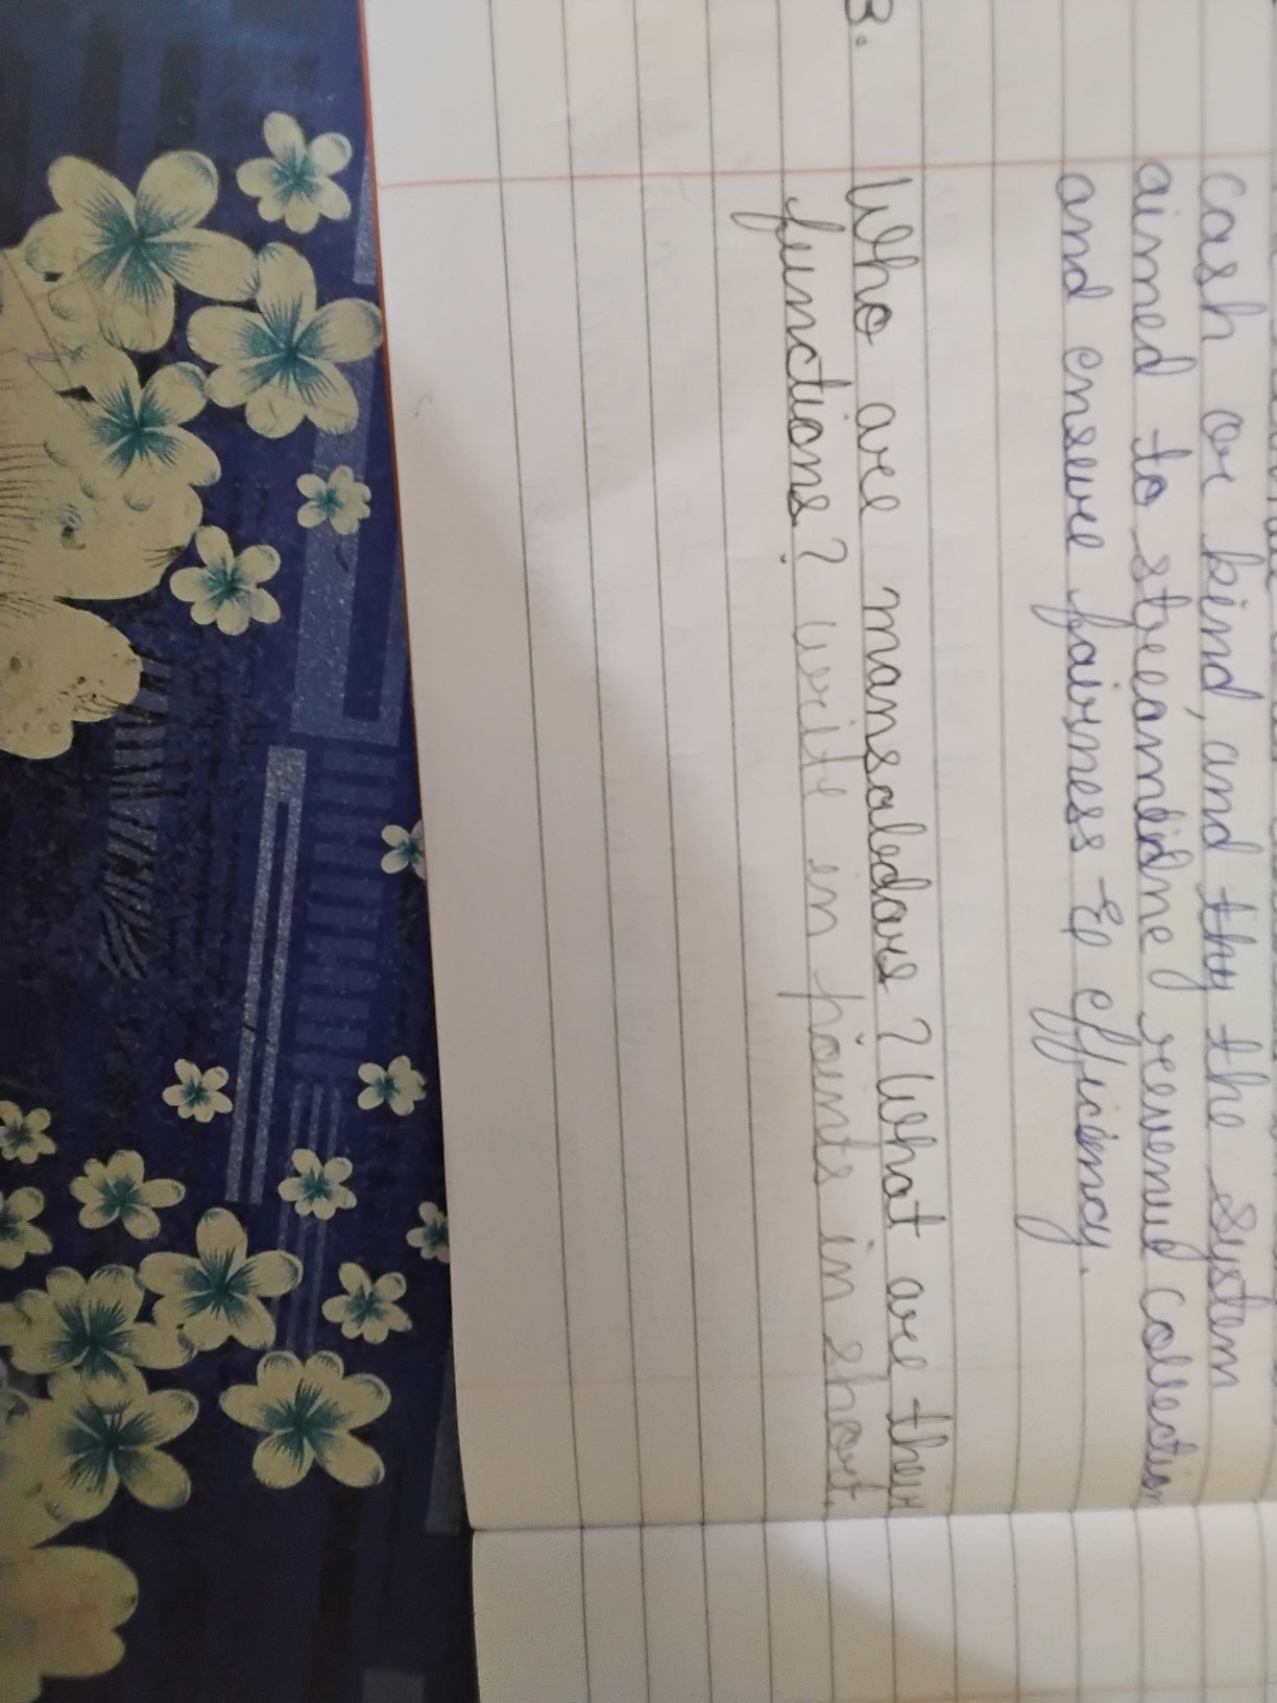 cash or kind, and thy the system
aimed to streamline revenue collection
and ensure fairness & efficiency.
3. Who are mansabdars? What are their
functions? write in points in short.